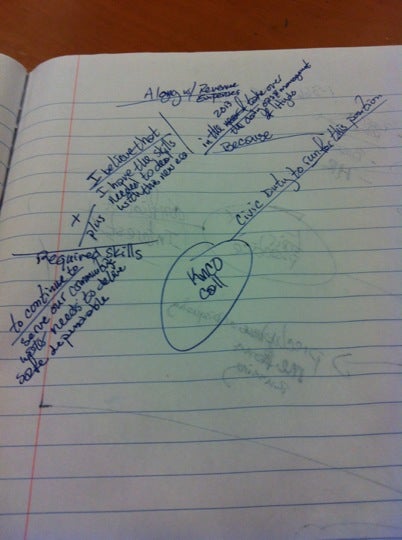 Along w/ Revenue
Expenses
2013
in the year take over
the day ops & management
of
Because
Civic Duty to run for this position
I believe that
I have the skills
needed to deal
with this new era
+
plus
Required skills
to continue to
serve our
water needs to
safe dependable
KMCO
Call